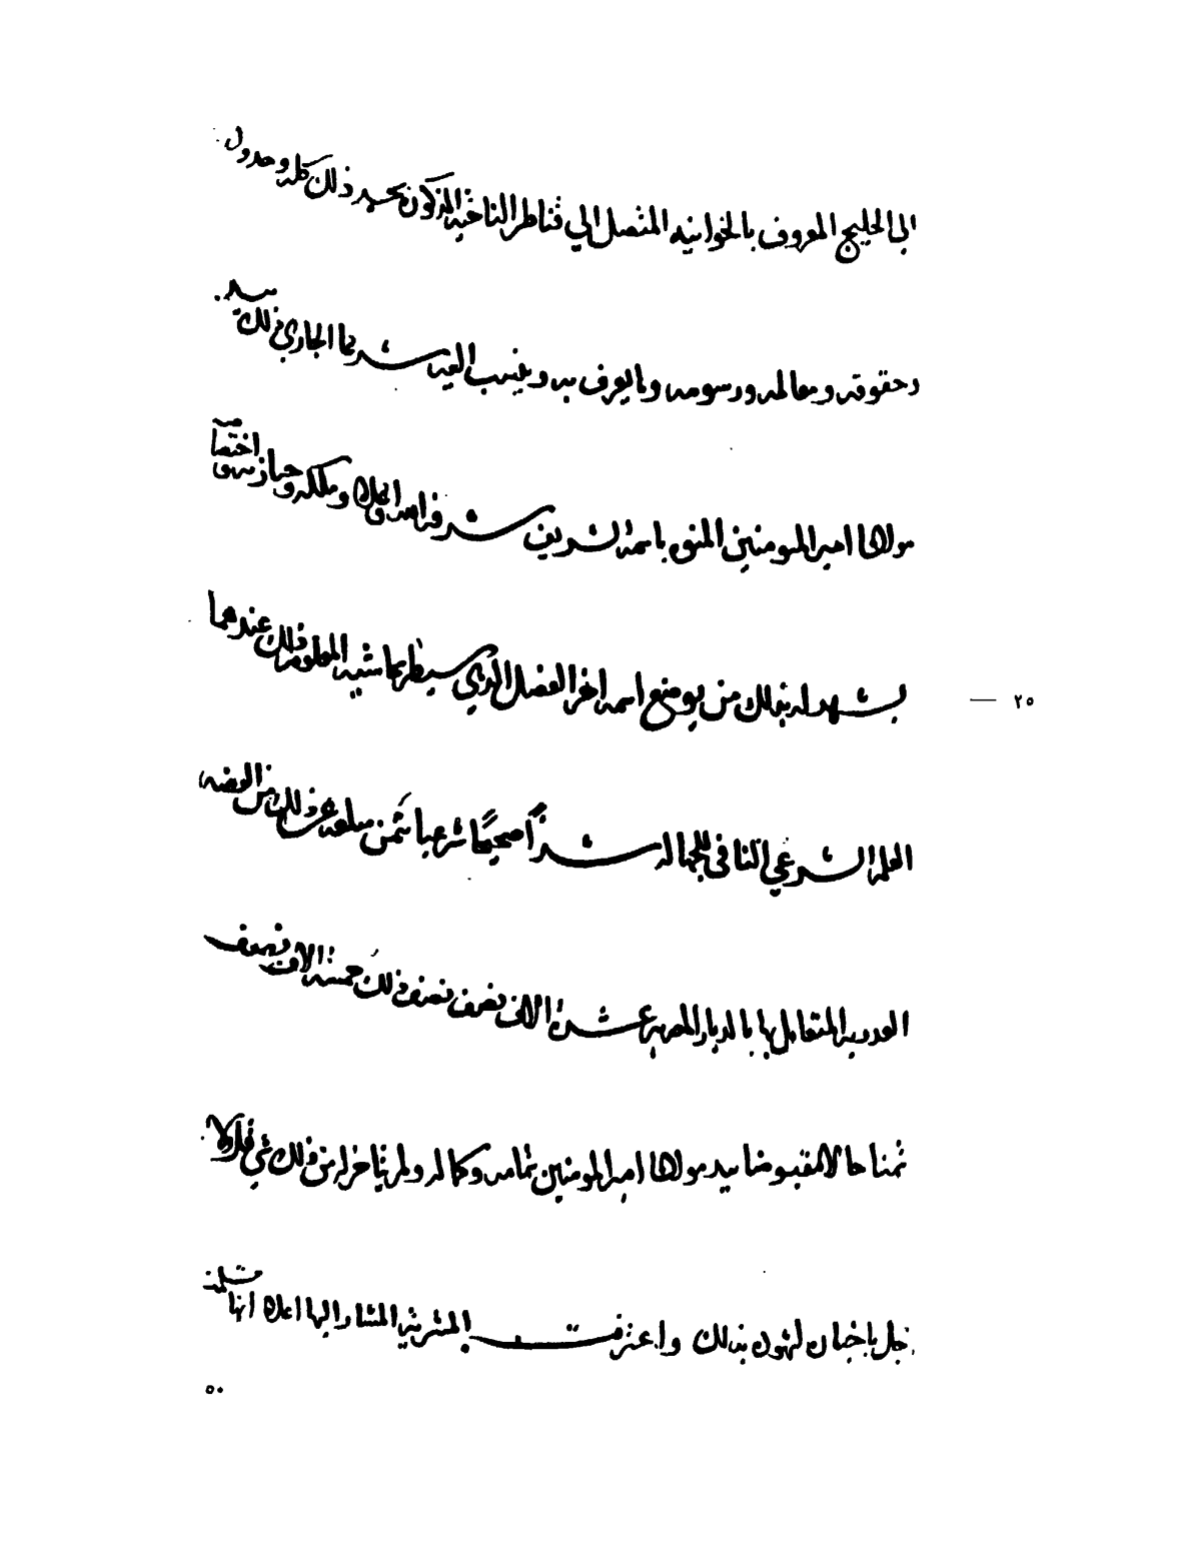 الى الخليج المعروف بالخوانيه المتصل الي قناطر الناحيه المذكون بحمد ذلك كله وحدوده
وحقوقه ومعالمه ورسومه وما يعرف به وينسب اليه شرعا الجاري ذلك بيد
مولانا امير المومنين المنوه باسمه الشريف شرفه الله وملكه وحيازته واختصاصه
يشهد له بذلك من يوضع اسمه اخر الفصل الذي سيسطر بهامشيه المعلوم ذلك عندهما
العلم الشرعي النافي للجهاله شرًا صحيحًا شرعيا بثمن مبلغه عن ذلك من الفضه
العدديه المتعامل بها بالديار المصريه عشرة الاف نصف نصف ذلك خمسة الاف نصف
ثمنا حالا مقبوضا بيد مولانا امير المومنين بتمامه وكماله ولم يتاخر له من ذلك شي قل ولا
جل باخبار شهوده بذلك واعترفت المشتريه المشار اليها اعلاه انها تسلمت
٢٥
٥٠